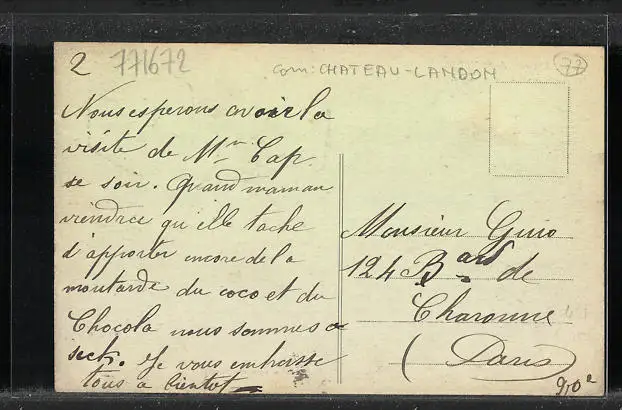 2 771672 com: CHATEAU-LANDON 77
Nous esperons avoir la
visite de Mm Cap
se soir. Quand maman
viendree qu'elle tache
d'apporter encore de la
moutarde du coco et du
Chocola nous sommes a
sech. Je vous embrasse
tous a bientot
Monsieur Guio
124 Bard de
Charonne
(Paris)
9,0e